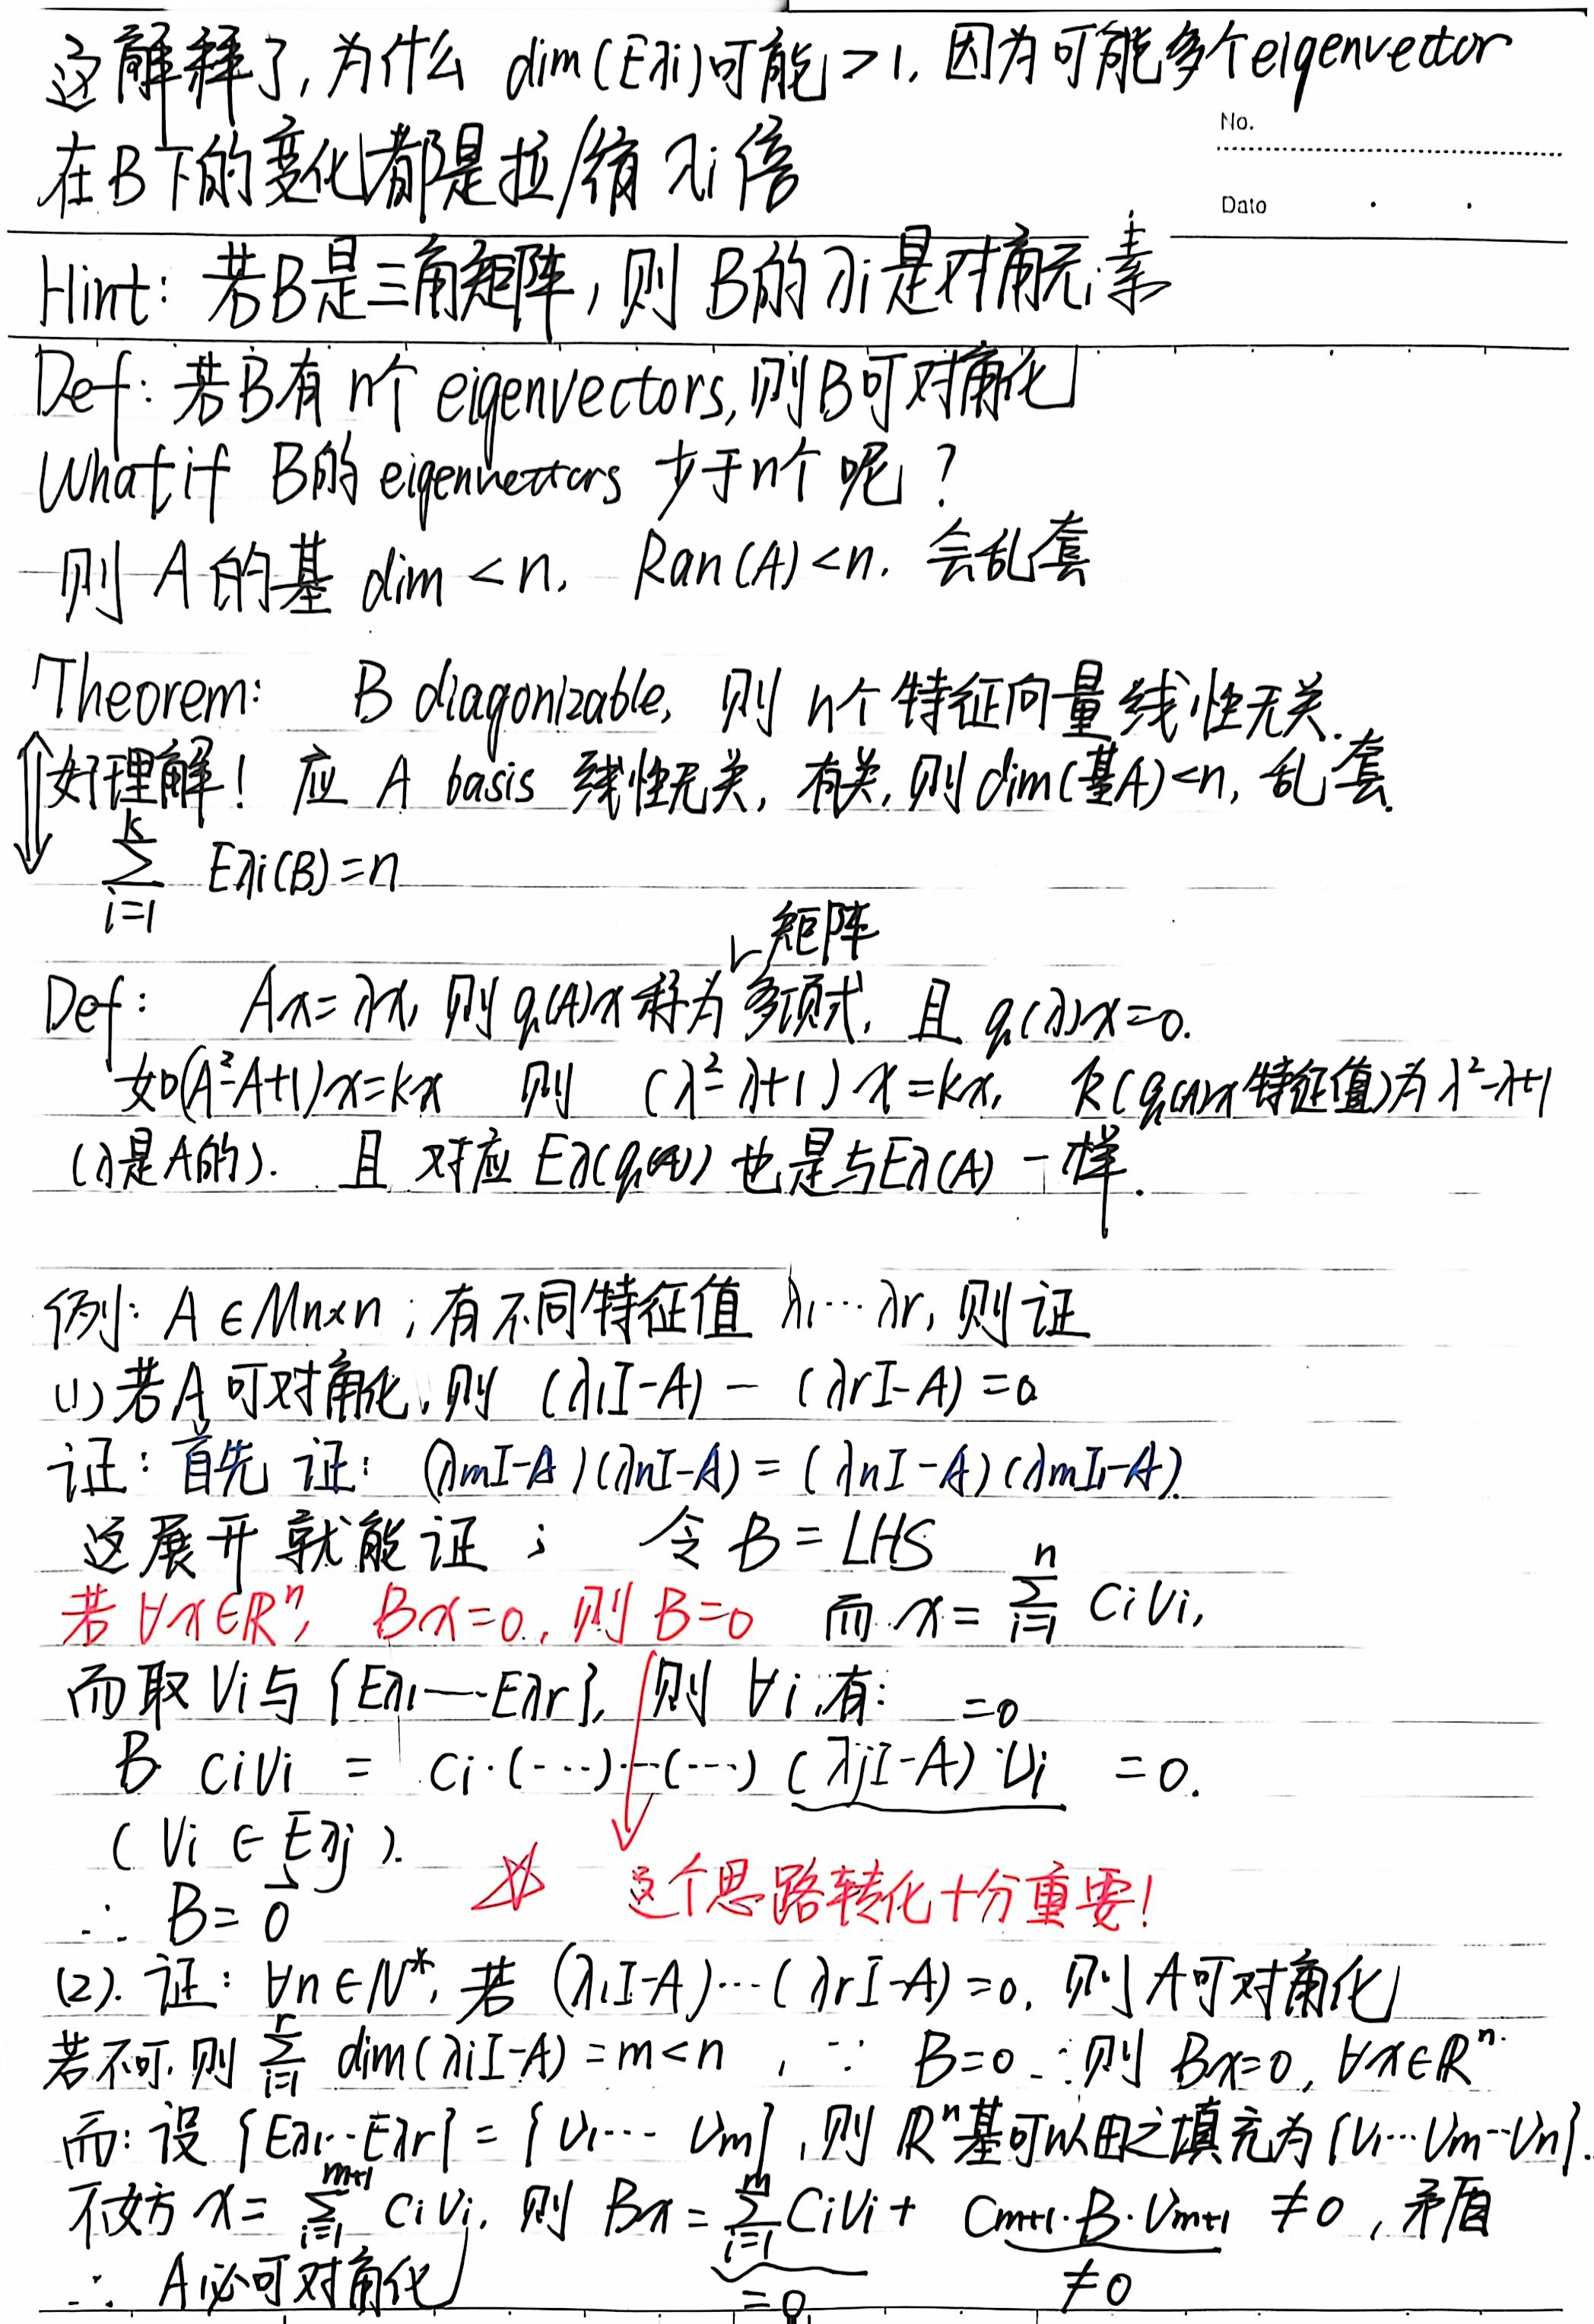 这解释了,为什么 dim(Eλi)可能>1, 因为可能多个eigenvector
No.
在B下的变化都是拉/缩 λi倍
Date
Hint: 若B是三角矩阵,则 B的λi是对角元素
Def: 若B有n个 eigenvectors,则B可对角化
What if B的 eigenvectors 少于n个呢?
则 A的基 dim <n, Ran(A)<n. 会乱套
Theorem: B diagonizable, 则 n个特征向量线性无关.
好理解! 应 A basis 线性无关, 有关,则dim(基A)<n, 乱套.
k∑i=1 Eλi(B)=n
矩阵
Def: Ax=λx, 则 q(A)x称为多项式, 且 q(λ)x=0.
如(A²-A+1)x=kx 则 (λ²-λ+1)x=kx, k(q(A)x特征值)为λ²-λ+1
(λ是A的). 且对应Eλ(q(A))也是与Eλ(A)一样.
例: A∈Mn×n ; 有不同特征值 λ1…λr, 则证
(1)若A可对角化,则 (λ1I-A) — (λrI-A)=0
证: 首先证: (λmI-A)(λnI-A)=(λnI-A)(λmI-A).
这展开就能证 ; 令B=LHS
若∀x∈ℝⁿ, Bx=0, 则 B=0 而 x= n∑i=1 CiVi,
而取Vi与{Eλ1—--Eλr}, 则 ∀i,有: =0
B CiVi = Ci·(-…)…(…)(λjI-A)Vi =0.
(Vi∈Eλj).
∴ B=0 ☆ 这个思路转化十分重要!
(2). 证: ∀n∈N*, 若 (λ1I-A)…(λrI-A)=0, 则A可对角化
若不可,则 r∑i=1 dim(λiI-A)=m<n , ∵ B=0 ∴则 Bx=0, ∀x∈ℝⁿ.
而: 设{Eλ1…Eλr}={V1…Vm},则ℝⁿ基可以由之填充为{V1…Vm…Vn}.
不妨 x= m+1∑i=1 CiVi, 则 Bx= m∑i=1 CiVi + Cm+1·B·Vm+1 ≠0 ,矛盾
∴ A必可对角化 =0 ≠0